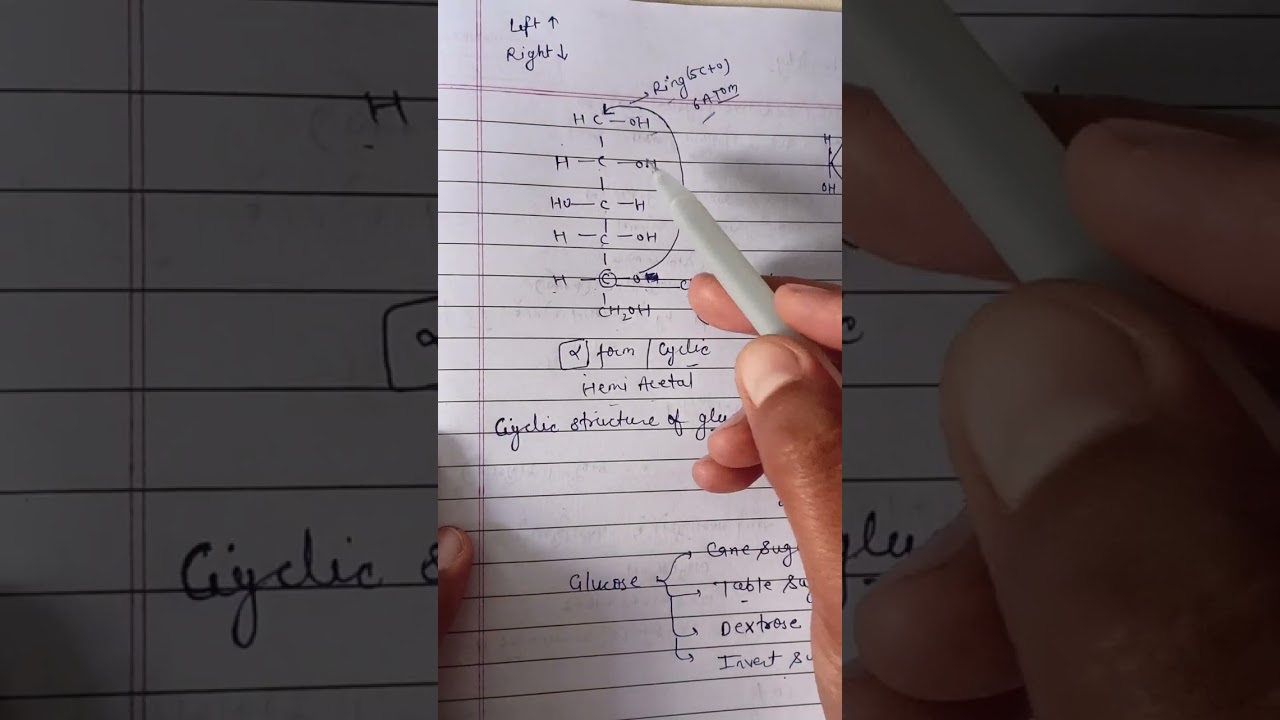 Left ↑
Right ↓
Ring (5C+O)
6 ATOM
H C — OH
H — C — OH
HO — C — H
H — C — OH
H — C — O
CH2OH
α form / Cyclic
Hemi Acetal
Cyclic structure of glu
Glucose
Cane Sug
Table Su
Dextrose
Invert Su
H
OH
H
α
Cyclic s
glu